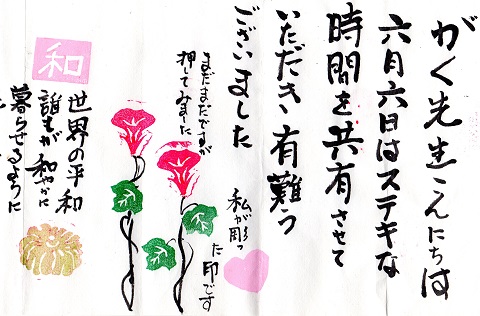 がく先生こんにちは
六月六日はステキな
時間を共有させて
いただき有難う
ございました
まだまだですが
押してみました
私が彫っ
た印です
和
世界の平和
誰もが和やかに
暮らせるように